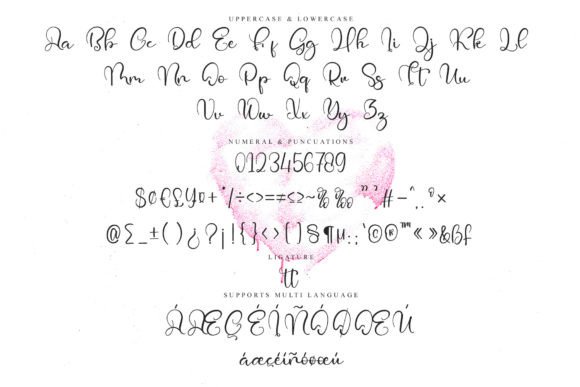 UPPERCASE & LOWERCASE
Aa Bb Cc Dd Ee Ff Gg Hh Ii Jj Kk Ll
Mm Nn Oo Pp Qq Rr Ss Tt Uu
Vv Ww Xx Yy Zz
NUMERAL & PUNCUATIONS
0123456789
$¢€£¥¤+*/÷<>=≠≤≥~%‰"'#-^.,°×
@∑_±()¿?¡!{}‹›[]§¶µ:;`©®™«»&ßf
LIGATURE
tt
SUPPORTS MULTI LANGUAGE
ÁÆÇÉÍÑÓØŒÚ
áæçéíñóøœú